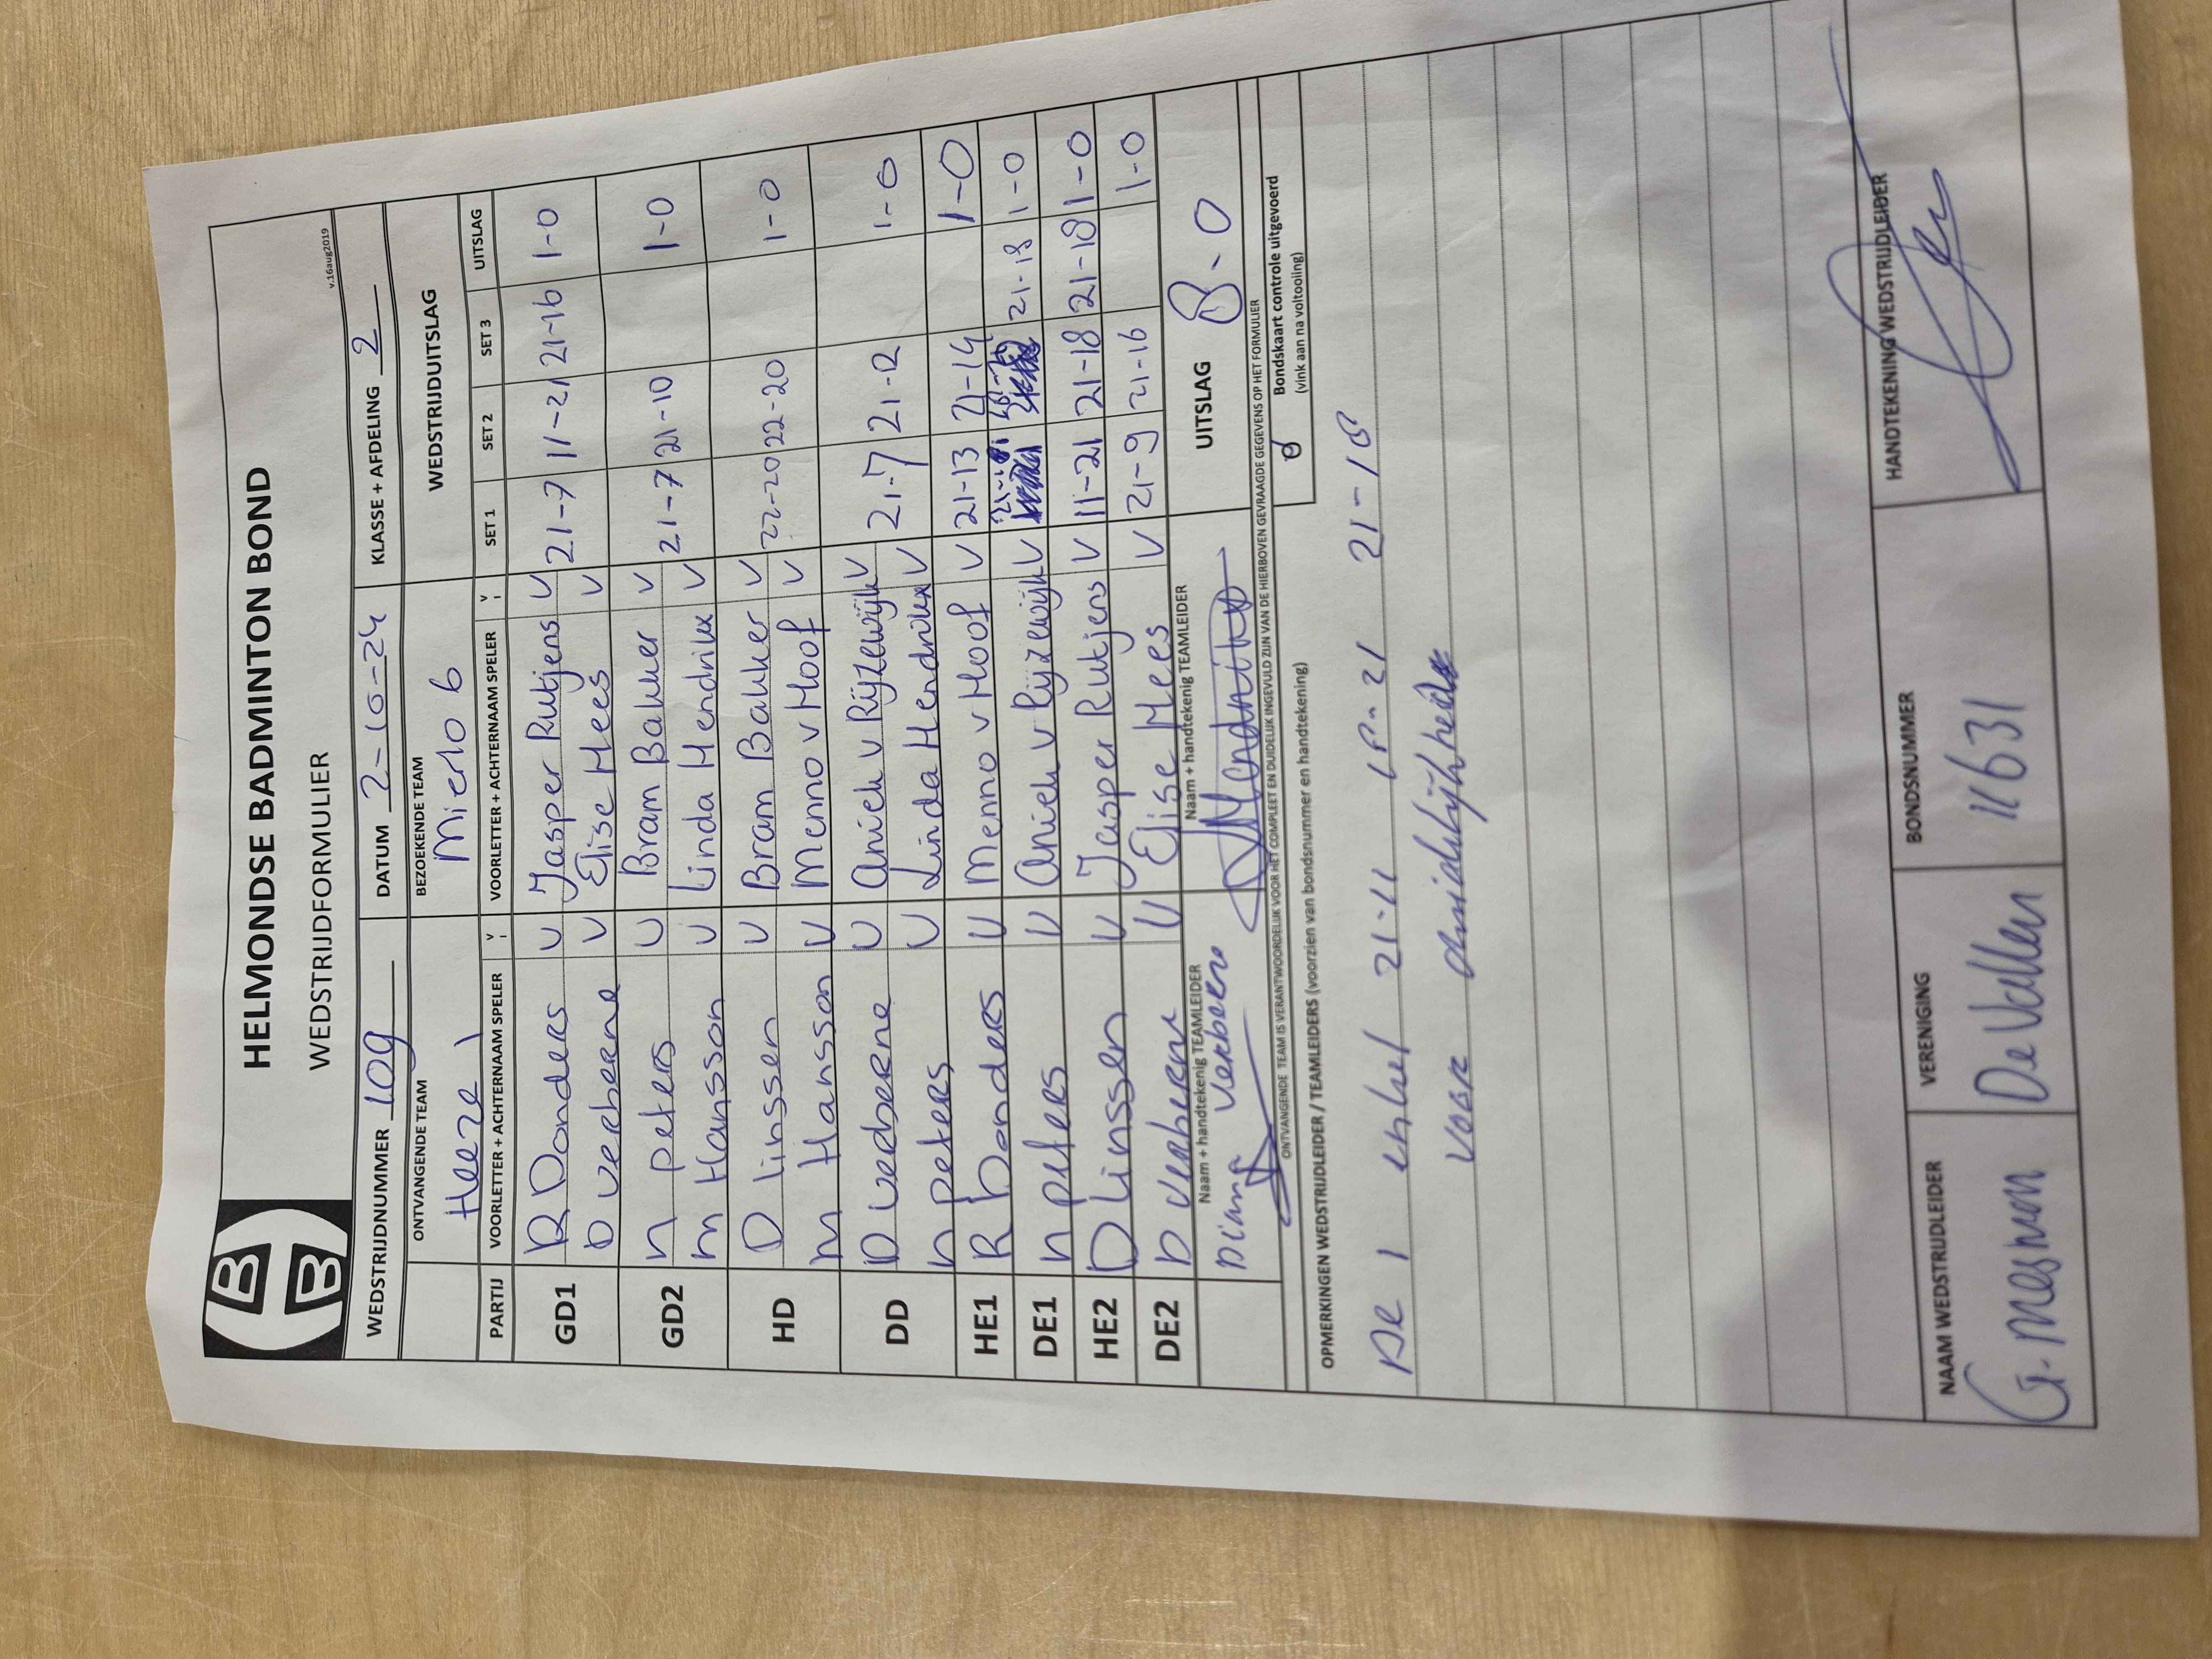 HELMONDSE BADMINTON BOND
WEDSTRIJDFORMULIER
v.16aug2019
WEDSTRIJDNUMMER 109 DATUM 2-10-24 KLASSE + AFDELING 2
ONTVANGENDE TEAM BEZOEKENDE TEAM WEDSTRIJDUITSLAG
Heeze 1 Mierlo 6
PARTIJ VOORLETTER + ACHTERNAAM SPELER V VOORLETTER + ACHTERNAAM SPELER V SET 1 SET 2 SET 3 UITSLAG
GD1 R Donders V Jasper Rutjens V 21-7 11-21 21-16 1-0
D Verberne V Elise Hees V
GD2 n peters V Bram Bakker V 21-7 21-10 1-0
m Hansson V Linda Hendrikx V
HD D linssen V Bram Bakker V 22-20 22-20 1-0
m Hansson V Menno v Hoof V
DD D verberne V Aniek v Rijzewijk V 21-7 21-12 1-0
n peters V Linda Hendrikx V
HE1 R Donders V Menno v Hoof V 21-13 21-14 1-0
DE1 n peters V Aniek v Rijzewijk V 21-18 1-0
HE2 D linssen V Jasper Rutjens V 11-21 21-18 21-18 1-0
DE2 D verberne V Elise Hees V 21-9 21-16 1-0
Naam + handtekenig TEAMLEIDER Naam + handtekenig TEAMLEIDER UITSLAG 8-0
Diana Verberne
ONTVANGENDE TEAM IS VERANTWOORDELIJK VOOR HET COMPLEET EN DUIDELIJK INGEVULD ZIJN VAN DE HIERBOVEN GEVRAAGDE GEGEVENS OP HET FORMULIER
Bondskaart controle uitgevoerd
(vink aan na voltooiing)
OPMERKINGEN WEDSTRIJDLEIDER / TEAMLEIDERS (voorzien van bondsnummer en handtekening)
De 1 enkel 21-11 21-18
voor duidelijkheid
NAAM WEDSTRIJDLEIDER VERENIGING BONDSNUMMER HANDTEKENING WEDSTRIJDLEIDER
G. Mesman De Vallen 11631